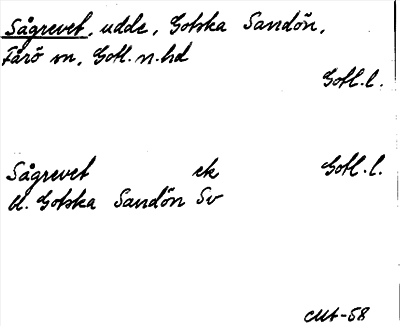 Sågrevet, udde, Gotska Sandön,
Fårö sn, Gotl. n. hd
Gotl. l.
Sågrevet ek Gotl. l.
bl. Gotska Sandön Sv
CMt-58